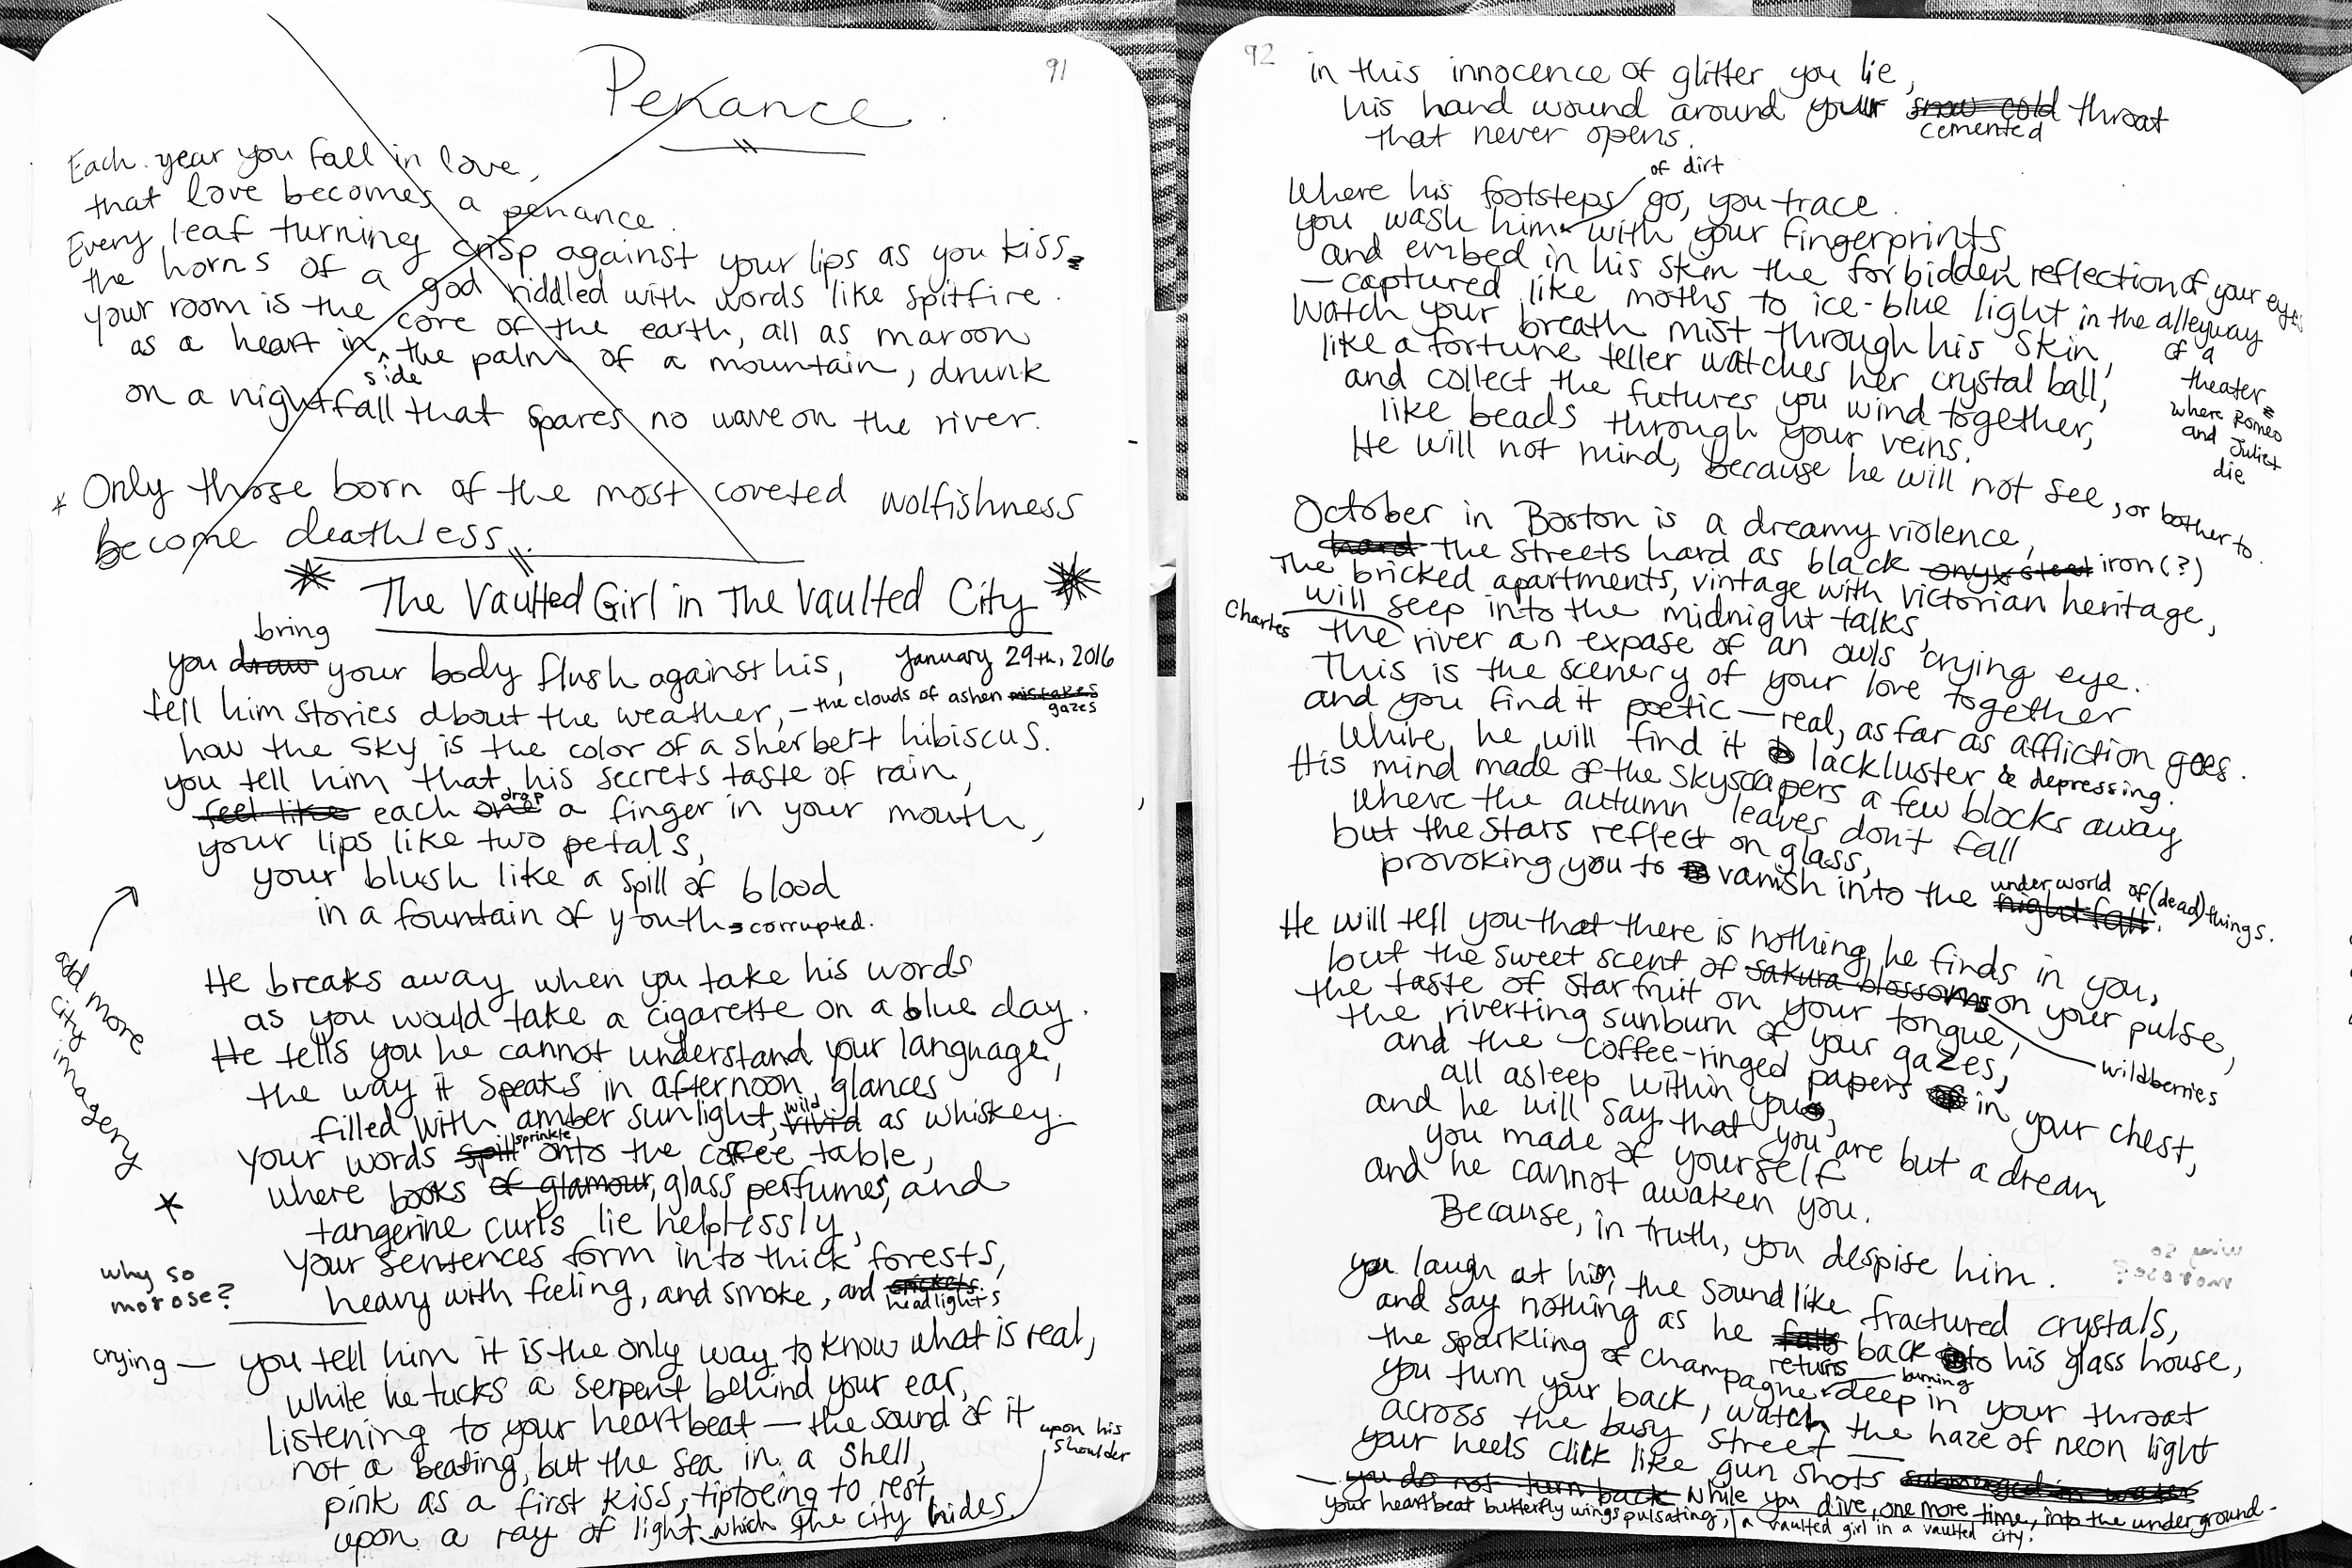 91
Penance.
Each year you fall in love,
that love becomes a penance.
Every leaf turning crisp against your lips as you kiss
the horns of a god riddled with words like spitfire.
your room is the core of the earth, all as maroon
as a heart in the palm of a mountain, drunk
side
on a nightfall that spares no wave on the river.
* Only those born of the most coveted wolfishness
become deathless.
* The Vaulted Girl in The Vaulted City *
January 29th, 2016
bring
you draw your body flush against his,
tell him stories about the weather, – the clouds of ashen mistakes
gazes
how the sky is the color of a sherbert hibiscus.
you tell him that his secrets taste of rain,
feel like each one drop a finger in your mouth,
your lips like two petals,
your blush like a spill of blood
in a fountain of youth corrupted.
add more
city
imagery
*
He breaks away when you take his words
as you would take a cigarette on a blue day.
He tells you he cannot understand your language,
the way it speaks in afternoon glances
filled with amber sunlight, vivid wild as whiskey.
your words spill sprinkle onto the coffee table,
where books of glamour, glass perfumes, and
tangerine curls lie helplessly,
your sentences form into thick forests,
heavy with feeling, and smoke, and crickets.
headlights
why so
morose?
crying — you tell him it is the only way to know what is real,
while he tucks a serpent behind your ear,
listening to your heartbeat — the sound of it
not a beating, but the sea in a shell,
pink as a first kiss, tiptoeing to rest
upon his
shoulder
upon a ray of light which the city hides.
92
in this innocence of glitter you lie,
his hand wound around your snow cold throat
cemented
that never opens.
of dirt
Where his footsteps go, you trace.
you wash him with your fingerprints,
and embed in his skin the forbidden reflection of your eyes
– captured like moths to ice-blue light in the alleyway
of a
theater
where Romeo
and Juliet
die
Watch your breath mist through his skin,
like a fortune teller watches her crystal ball,
and collect the futures you wind together,
like beads through your veins.
He will not mind, because he will not see, or bother to.
October in Boston is a dreamy violence,
hard the streets hard as black onyx steel iron (?)
The bricked apartments, vintage with victorian heritage,
will seep into the midnight talks,
Charles
the river an expase of an owls crying eye.
This is the scenery of your love together
and you find it poetic — real, as far as affliction goes.
While he will find it lackluster & depressing.
His mind made of the skyscapers a few blocks away
where the autumn leaves don't fall
but the stars reflect on glass,
provoking you to vanish into the nightfall.
underworld of (dead) things.
He will tell you that there is nothing he finds in you,
but the sweet scent of sakura blossoms on your pulse,
wildberries
the taste of starfruit on your tongue,
the riverting sunburn of your gazes,
and the coffee-ringed papers in your chest,
all asleep within you,
and he will say that you are but a dream
you made of yourself
and he cannot awaken you.
Because, in truth, you despise him.
you laugh at him, the sound like fractured crystals,
and say nothing as he falls back to his glass house,
returns
the sparkling of champagne deep in your throat
burning
you turn your back, watch the haze of neon light
across the busy street —
your heels click like gun shots submerged in water
– you do not turn back while you dive, one more time, into the underground –
your heartbeat butterfly wings pulsating, / a vaulted girl in a vaulted city.